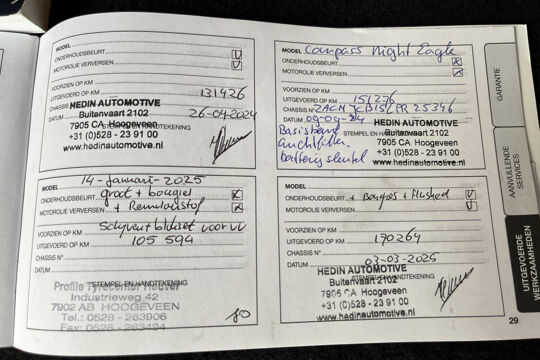 MODEL
ONDERHOUDSBEURT V
MOTOROLIE VERVERSEN V
VOORZIEN OP KM
UITGEVOERD OP KM 131426
CHASSIS N°
DATUM 26-04-2024
STEMPEL EN HANDTEKENING
HEDIN AUTOMOTIVE
Buitenvaart 2102
7905 CA Hoogeveen
+31 (0)528 - 23 91 00
www.hedinautomotive.nl
MODEL Compass Night Eagle
ONDERHOUDSBEURT X
MOTOROLIE VERVERSEN X
VOORZIEN OP KM
UITGEVOERD OP KM 151276
CHASSIS N°
DATUM
STEMPEL EN HANDTEKENING
HEDIN AUTOMOTIVE
Buitenvaart 2102
7905 CA Hoogeveen
+31 (0)528 - 23 91 00
www.hedinautomotive.nl
MODEL 14-Januari-2025
ONDERHOUDSBEURT groot + bougies X
MOTOROLIE VERVERSEN + Remvloeistof X
VOORZIEN OP KM voor
UITGEVOERD OP KM 105 594
CHASSIS N°
DATUM
STEMPEL EN HANDTEKENING
Profile Tyrecenter
Industrieweg 42
7902 AB HOOGEVEEN
Tel.: 0528 - 263906
Fax: 0528 - 263494
MODEL
ONDERHOUDSBEURT + Bougies + flushed V
MOTOROLIE VERVERSEN V
VOORZIEN OP KM
UITGEVOERD OP KM 170264
CHASSIS N°
DATUM 03-03-2025
STEMPEL EN HANDTEKENING
HEDIN AUTOMOTIVE
Buitenvaart 2102
7905 CA Hoogeveen
+31 (0)528 - 23 91 00
www.hedinautomotive.nl
29
GARANTIE
AANVULLENDE
SERVICES
UITGEVOERDE
WERKZAAMHEDEN